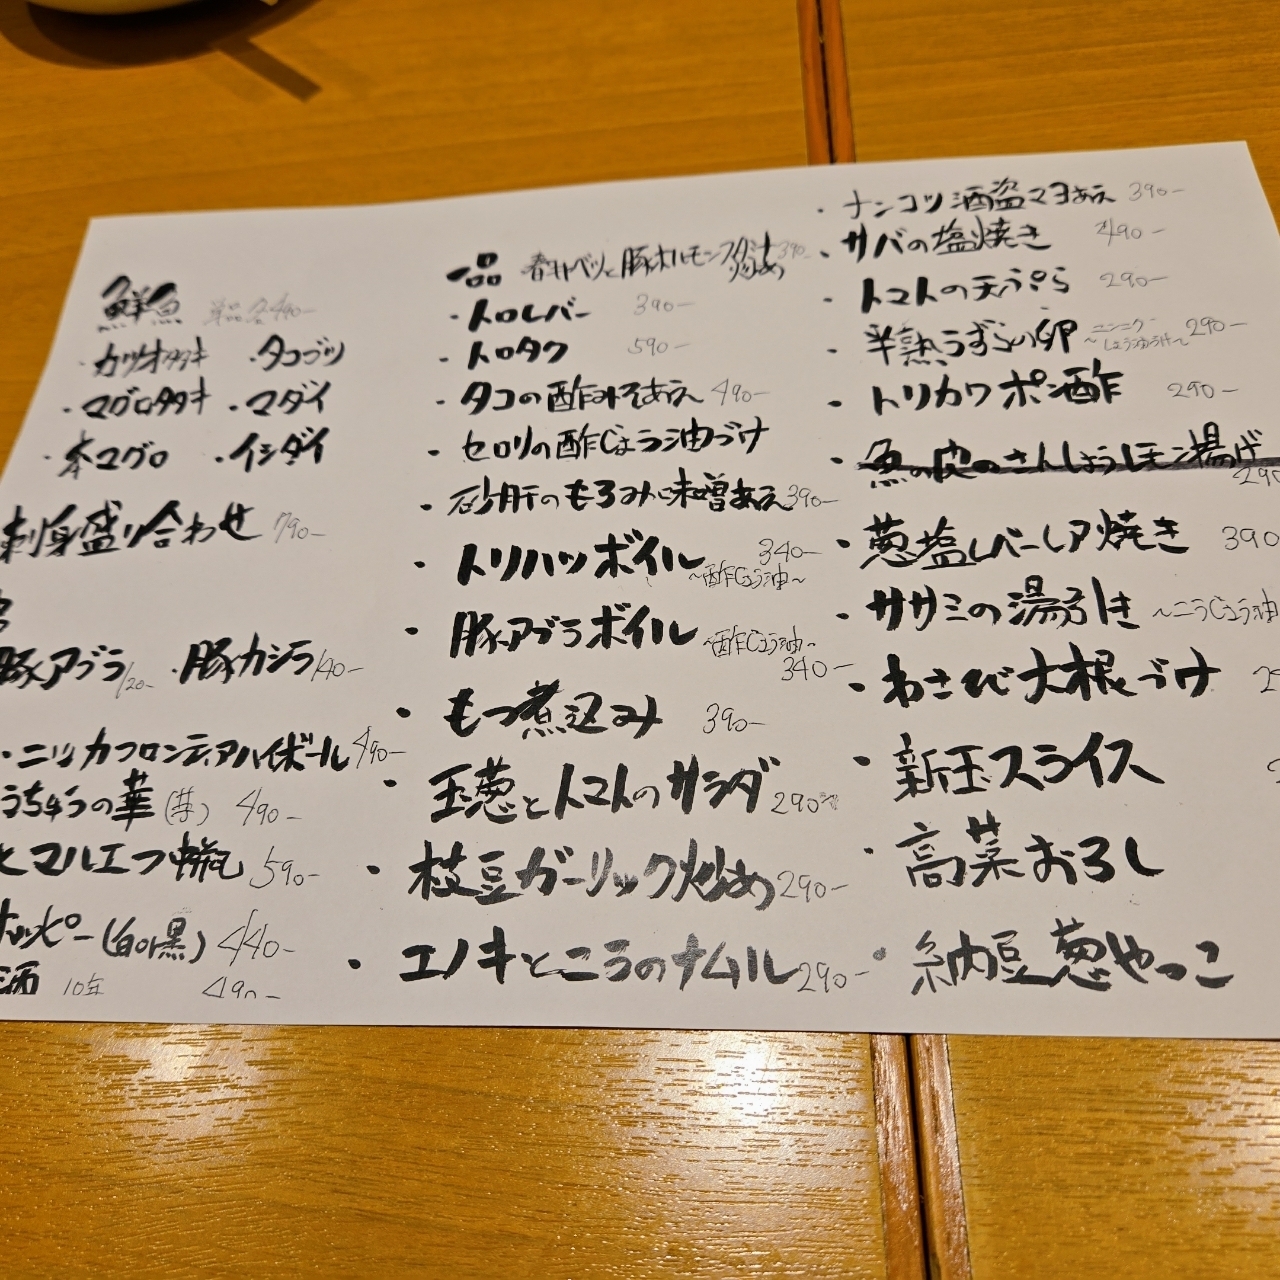 鮮魚 単品各490-
・カツオタタキ ・タコブツ
・マグロタタキ ・マダイ
・本マグロ ・イシダイ
刺身盛り合わせ 790-
豚アブラ/120- ・豚カシラ/140-
・ニッカフロンティアハイボール 490-
うちゅうの華(芋) 490-
マルエフ中瓶 590-
ホッピー(白or黒) 440-
酒 10年 490-
一品 春キャベツと豚ホルモンスタミナ炒め 390-
・トロレバー 390-
・トロタク 590-
・タコの酢みそあえ 490-
・セロリの酢じょう油づけ
・砂肝のもろみ味噌あえ 390-
・トリハツボイル ~酢じょう油~ 340-
・豚アブラボイル ~酢じょう油~ 340-
・もつ煮込み 390-
・玉葱とトマトのサラダ 290-
・枝豆ガーリック炒め 290-
・エノキとニラのナムル 290-
・ナンコツ酒盗マヨあえ 390-
・サバの塩焼き 490-
・トマトの天ぷら 290-
・半熟うずらの卵 ~ニンニクしょう油づけ~ 290-
・トリカワポン酢 290-
・魚の皮のさんしょうレモン揚げ 290
・葱塩レバーレア焼き 390
・ササミの湯引き ~ニラじょう油
・わさび大根づけ
・新玉スライス
・高菜おろし
・納豆葱やっこ